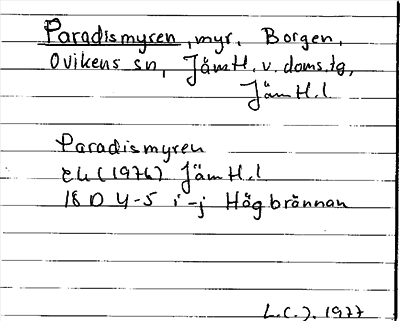 Paradismyren, myr, Borgen,
Ovikens sn, Jämtl. v. doms.tg,
Jämtl. l
Paradismyren
Ek (1976) Jämtl. l
18 D 4-5 i-j Högbrännan
L.C.J. 1977